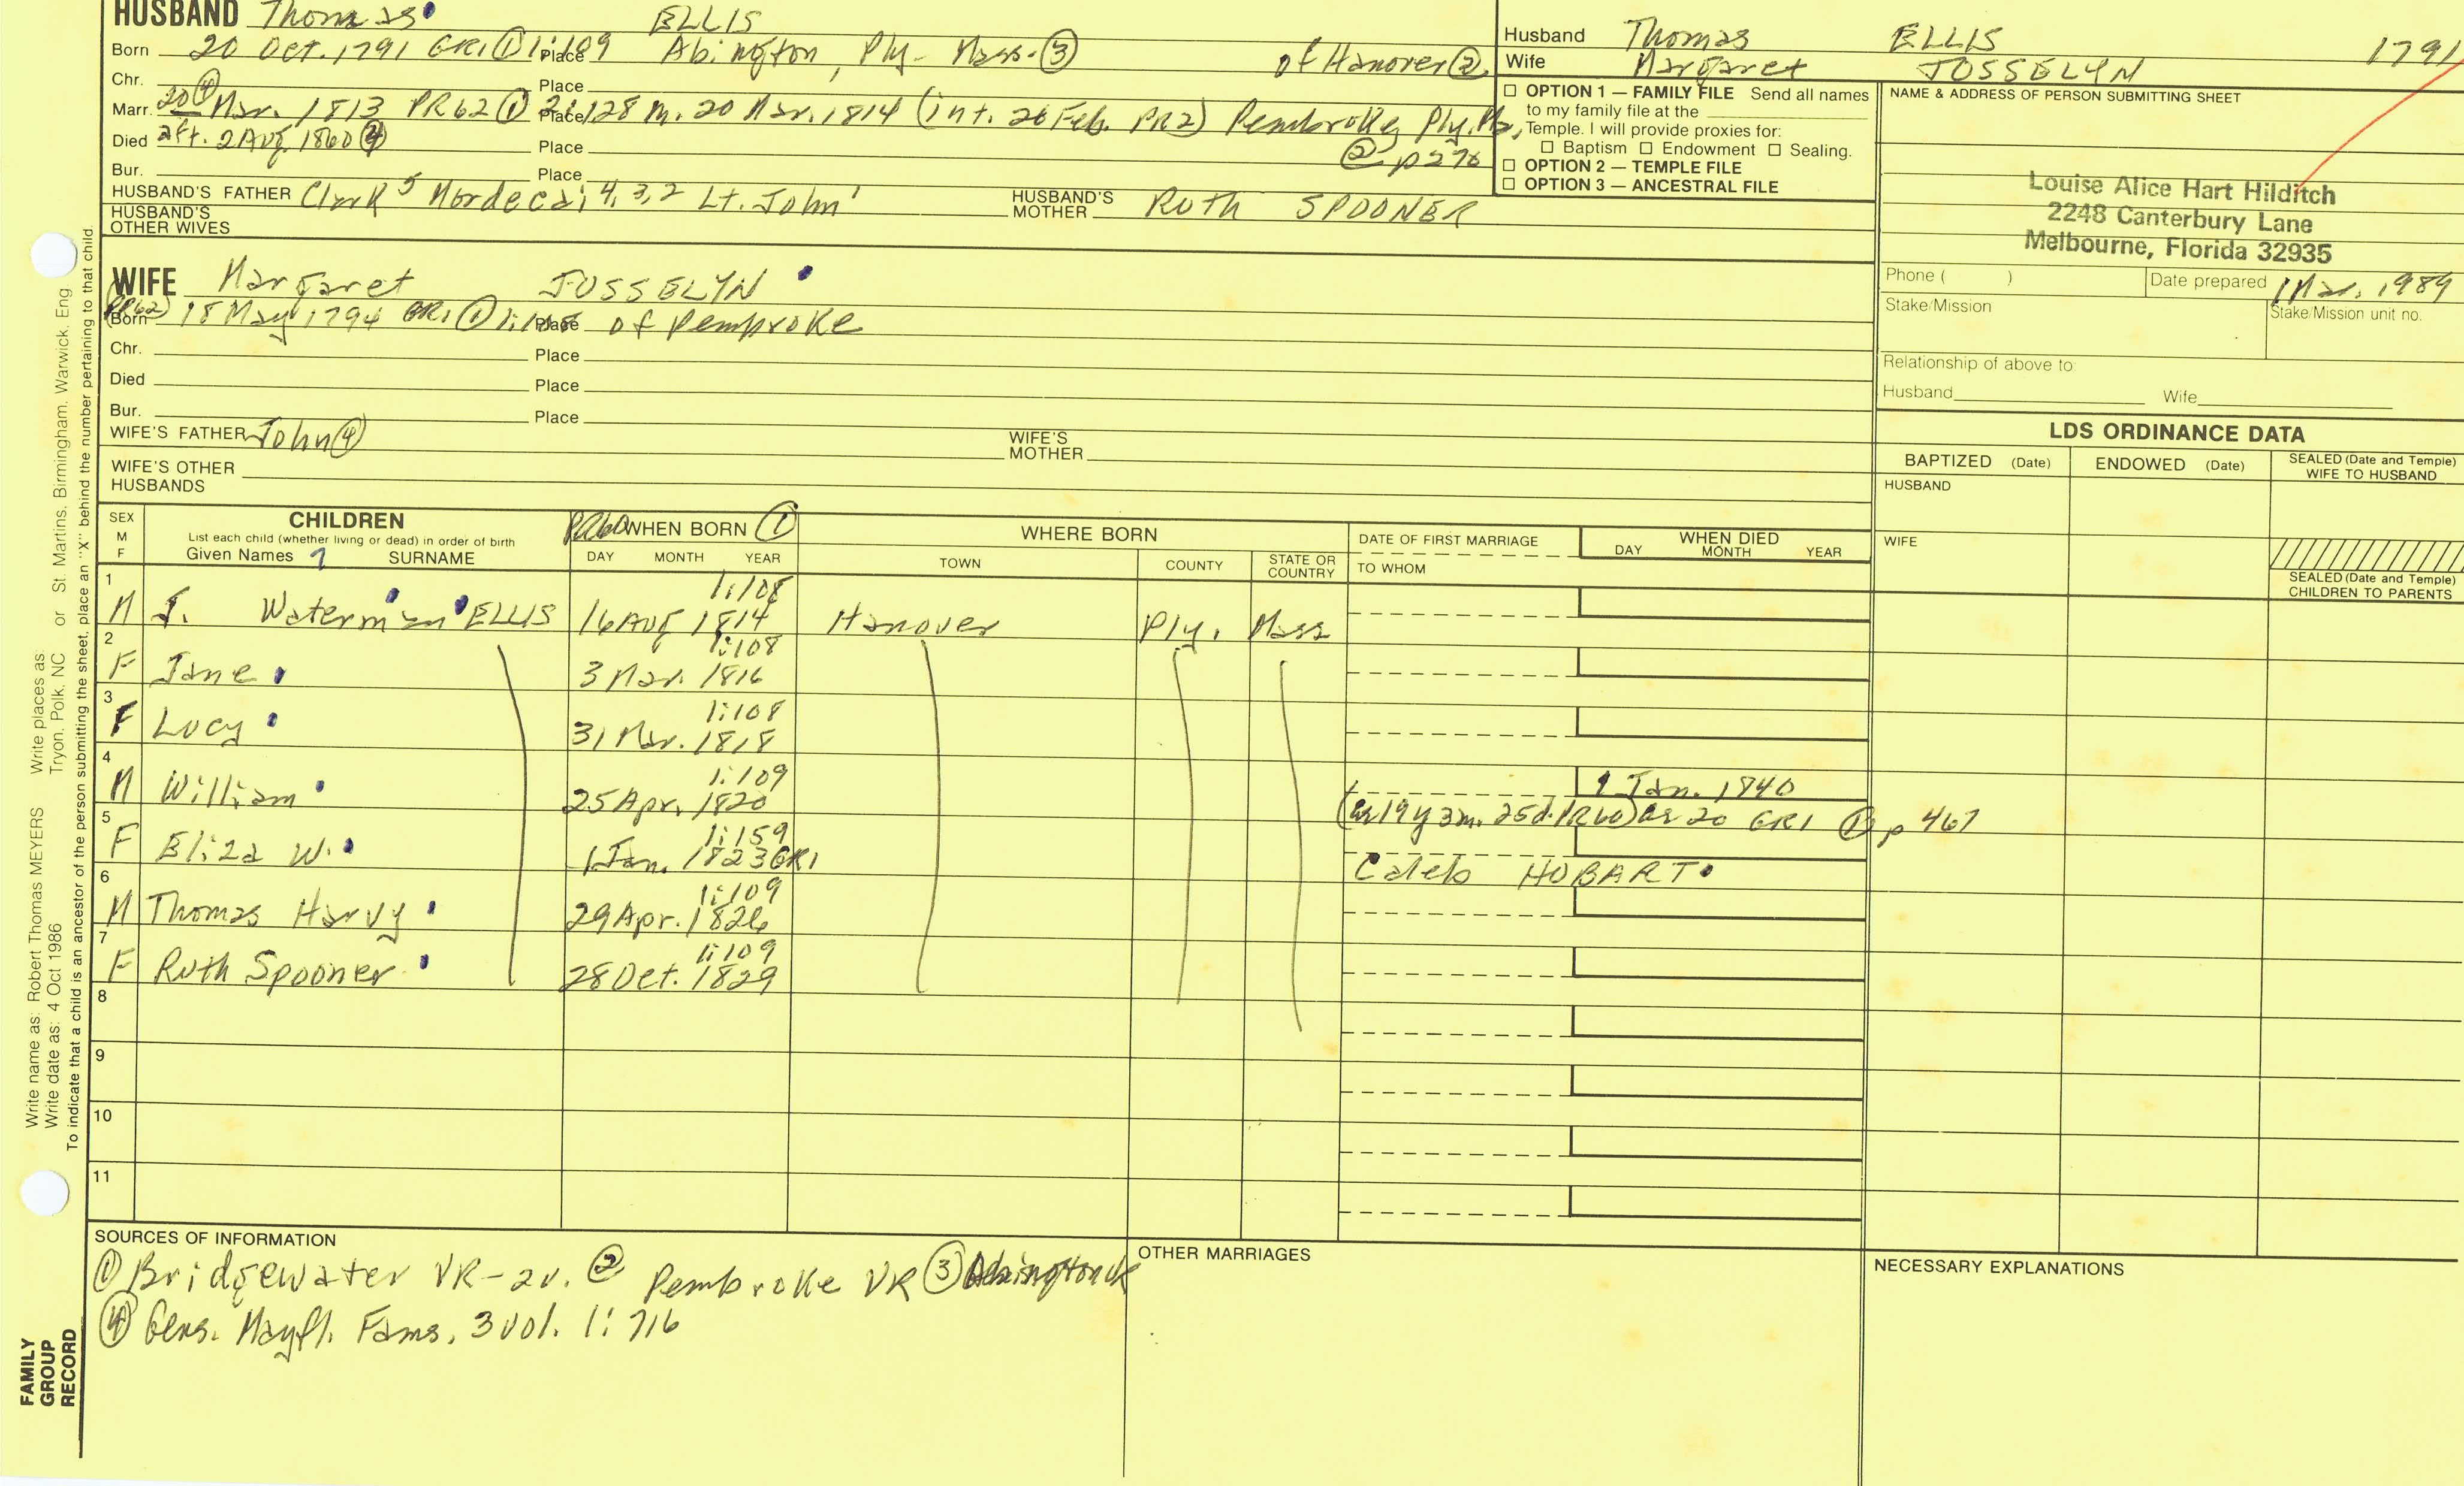 HUSBAND Thomas ELLIS
Born 20 Oct. 1791 GR1 ① 1:109 Place Abington, Ply- Mass. ③ of Hanover ②
Chr. Place
Marr. 20 ④ Mar. 1813 PR62 ① 2:128 Place m. 20 Mar. 1814 (int. 26 Feb. PR2) Pembroke, Ply. Ms,
Died aft. 2 Aug. 1860 ④ Place ② p 276
Bur. Place
HUSBAND'S FATHER Clark 5 Mordecai 4, 3, 2 Lt. John 1 HUSBAND'S MOTHER Ruth SPOONER
HUSBAND'S OTHER WIVES
WIFE Margaret JOSSELYN
(PR62)
Born 18 May 1794 GR1 ① 1:108 Place of Pembroke
Chr. Place
Died Place
Bur. Place
WIFE'S FATHER John ④ WIFE'S MOTHER
WIFE'S OTHER HUSBANDS
Husband Thomas ELLIS 1791
Wife Margaret JOSSELYN
☐ OPTION 1 — FAMILY FILE Send all names
to my family file at the
Temple. I will provide proxies for:
☐ Baptism ☐ Endowment ☐ Sealing.
☐ OPTION 2 — TEMPLE FILE
☐ OPTION 3 — ANCESTRAL FILE
NAME & ADDRESS OF PERSON SUBMITTING SHEET
Louise Alice Hart Hilditch
2248 Canterbury Lane
Melbourne, Florida 32935
Phone ( ) Date prepared 1 Mar. 1989
Stake/Mission Stake/Mission unit no.
Relationship of above to:
Husband Wife
LDS ORDINANCE DATA
BAPTIZED (Date) ENDOWED (Date) SEALED (Date and Temple) WIFE TO HUSBAND
HUSBAND
WIFE
SEALED (Date and Temple) CHILDREN TO PARENTS
SEX M F CHILDREN PR60 WHEN BORN ① WHERE BORN DATE OF FIRST MARRIAGE WHEN DIED
List each child (whether living or dead) in order of birth
Given Names ? SURNAME DAY MONTH YEAR TOWN COUNTY STATE OR COUNTRY TO WHOM DAY MONTH YEAR
1 1:108
M J. Waterman ELLIS 16 Aug 1814 Hanover Ply. Mass
2 1:108
F Jane 3 Mar. 1816
3 1:108
F Lucy 31 Mar. 1818
4 1:109
M William 25 Apr. 1820 1 Jan. 1840
(ae 19 y 3m. 25d. PR60) ae 20 GR1 ① p 467
5 1:159
F Eliza W. 1 Jan. 1823 GR1 Caleb HOBART
6 1:109
M Thomas Harvy 29 Apr. 1826
7 1:109
F Ruth Spooner 28 Oct. 1829
8
9
10
11
SOURCES OF INFORMATION
① Bridgewater VR-2v. ② Pembroke VR ③ Abington VR
④ Gens. Mayfl. Fams. 3 vol. 1: 716
OTHER MARRIAGES
NECESSARY EXPLANATIONS
Write name as: Robert Thomas MEYERS Write places as: Tryon, Polk, NC or St. Martins, Birmingham, Warwick, Eng
Write date as: 4 Oct 1986
To indicate that a child is an ancestor of the person submitting the sheet, place an "X" behind the number pertaining to that child.
FAMILY
GROUP
RECORD